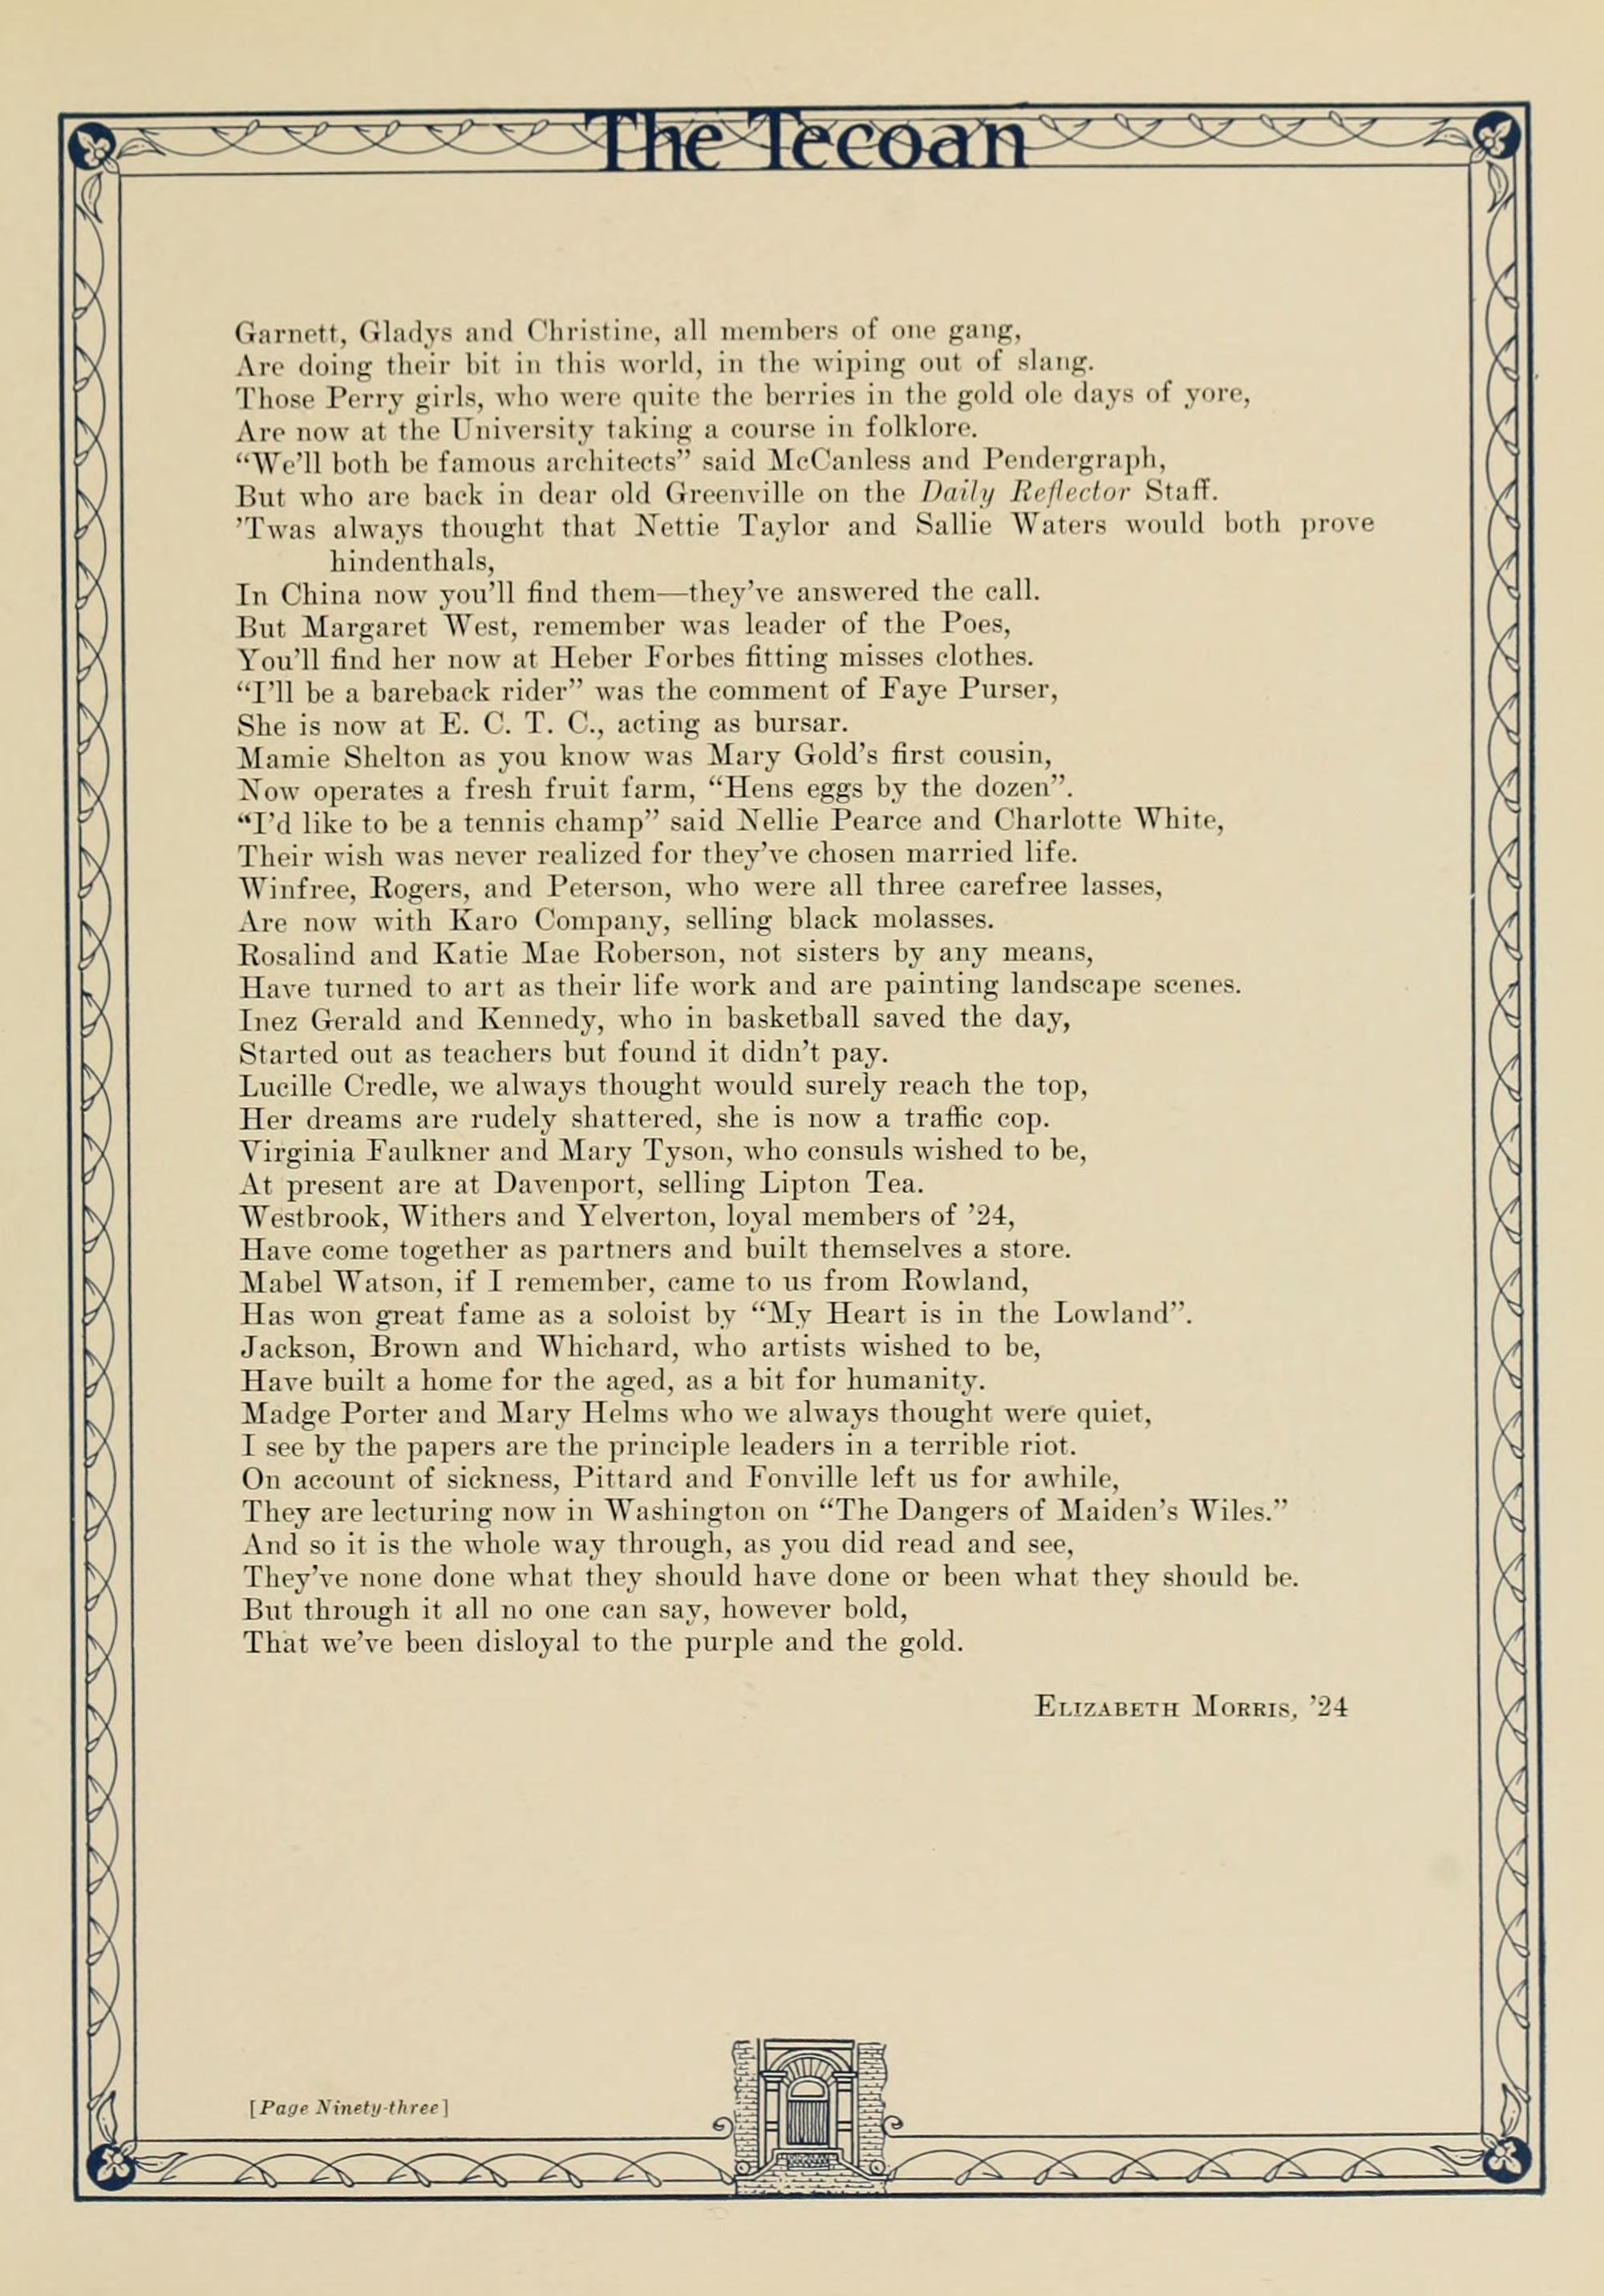 The Tecoan
Garnett, Gladys and Christine, all members of one gang,
Are doing their bit in this world, in the wiping out of slang.
Those Perry girls, who were quite the berries in the gold ole days of yore,
Are now at the University taking a course in folklore.
“We’ll both be famous architects” said McCanless and Pendergraph,
But who are back in dear old Greenville on the Daily Reflector Staff.
’Twas always thought that Nettie Taylor and Sallie Waters would both prove
hindenthals,
In China now you’ll find them—they’ve answered the call.
But Margaret West, remember was leader of the Poes,
You’ll find her now at Heber Forbes fitting misses clothes.
“I’ll be a bareback rider” was the comment of Faye Purser,
She is now at E. C. T. C., acting as bursar.
Mamie Shelton as you know was Mary Gold’s first cousin,
Now operates a fresh fruit farm, “Hens eggs by the dozen”.
“I’d like to be a tennis champ” said Nellie Pearce and Charlotte White,
Their wish was never realized for they’ve chosen married life.
Winfree, Rogers, and Peterson, who were all three carefree lasses,
Are now with Karo Company, selling black molasses.
Rosalind and Katie Mae Roberson, not sisters by any means,
Have turned to art as their life work and are painting landscape scenes.
Inez Gerald and Kennedy, who in basketball saved the day,
Started out as teachers but found it didn’t pay.
Lucille Credle, we always thought would surely reach the top,
Her dreams are rudely shattered, she is now a traffic cop.
Virginia Faulkner and Mary Tyson, who consuls wished to be,
At present are at Davenport, selling Lipton Tea.
Westbrook, Withers and Yelverton, loyal members of ’24,
Have come together as partners and built themselves a store.
Mabel Watson, if I remember, came to us from Rowland,
Has won great fame as a soloist by “My Heart is in the Lowland”.
Jackson, Brown and Whichard, who artists wished to be,
Have built a home for the aged, as a bit for humanity.
Madge Porter and Mary Helms who we always thought were quiet,
I see by the papers are the principle leaders in a terrible riot.
On account of sickness, Pittard and Fonville left us for awhile,
They are lecturing now in Washington on “The Dangers of Maiden’s Wiles.”
And so it is the whole way through, as you did read and see,
They’ve none done what they should have done or been what they should be.
But through it all no one can say, however bold,
That we’ve been disloyal to the purple and the gold.
Elizabeth Morris, ’24
[Page Ninety-three]